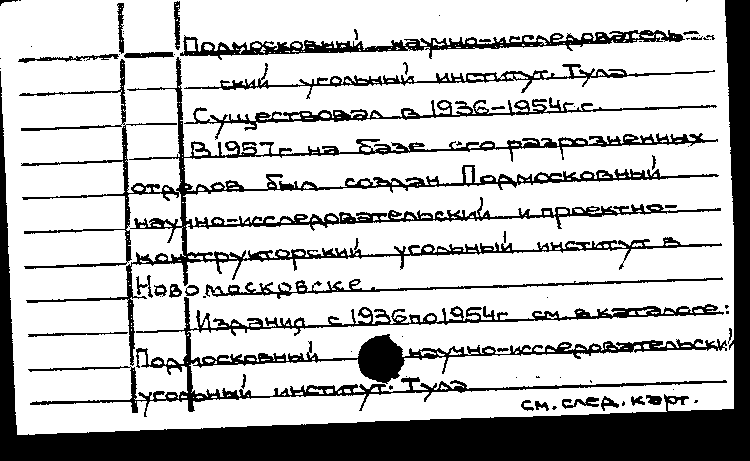 Подмосковный научно-исследователь-
ский угольный институт. Тула
Существовал в 1936-1954г.г.
В 1957г на базе его разрозненных
отделов был создан Подмосковный
научно-исследовательский и проектно-
конструкторский угольный институт в
Новомосковске.
Издания с 1936 по 1954г см. в каталоге:
Подмосковный научно-исследовательский
угольный институт. Тула
см. след. карт.